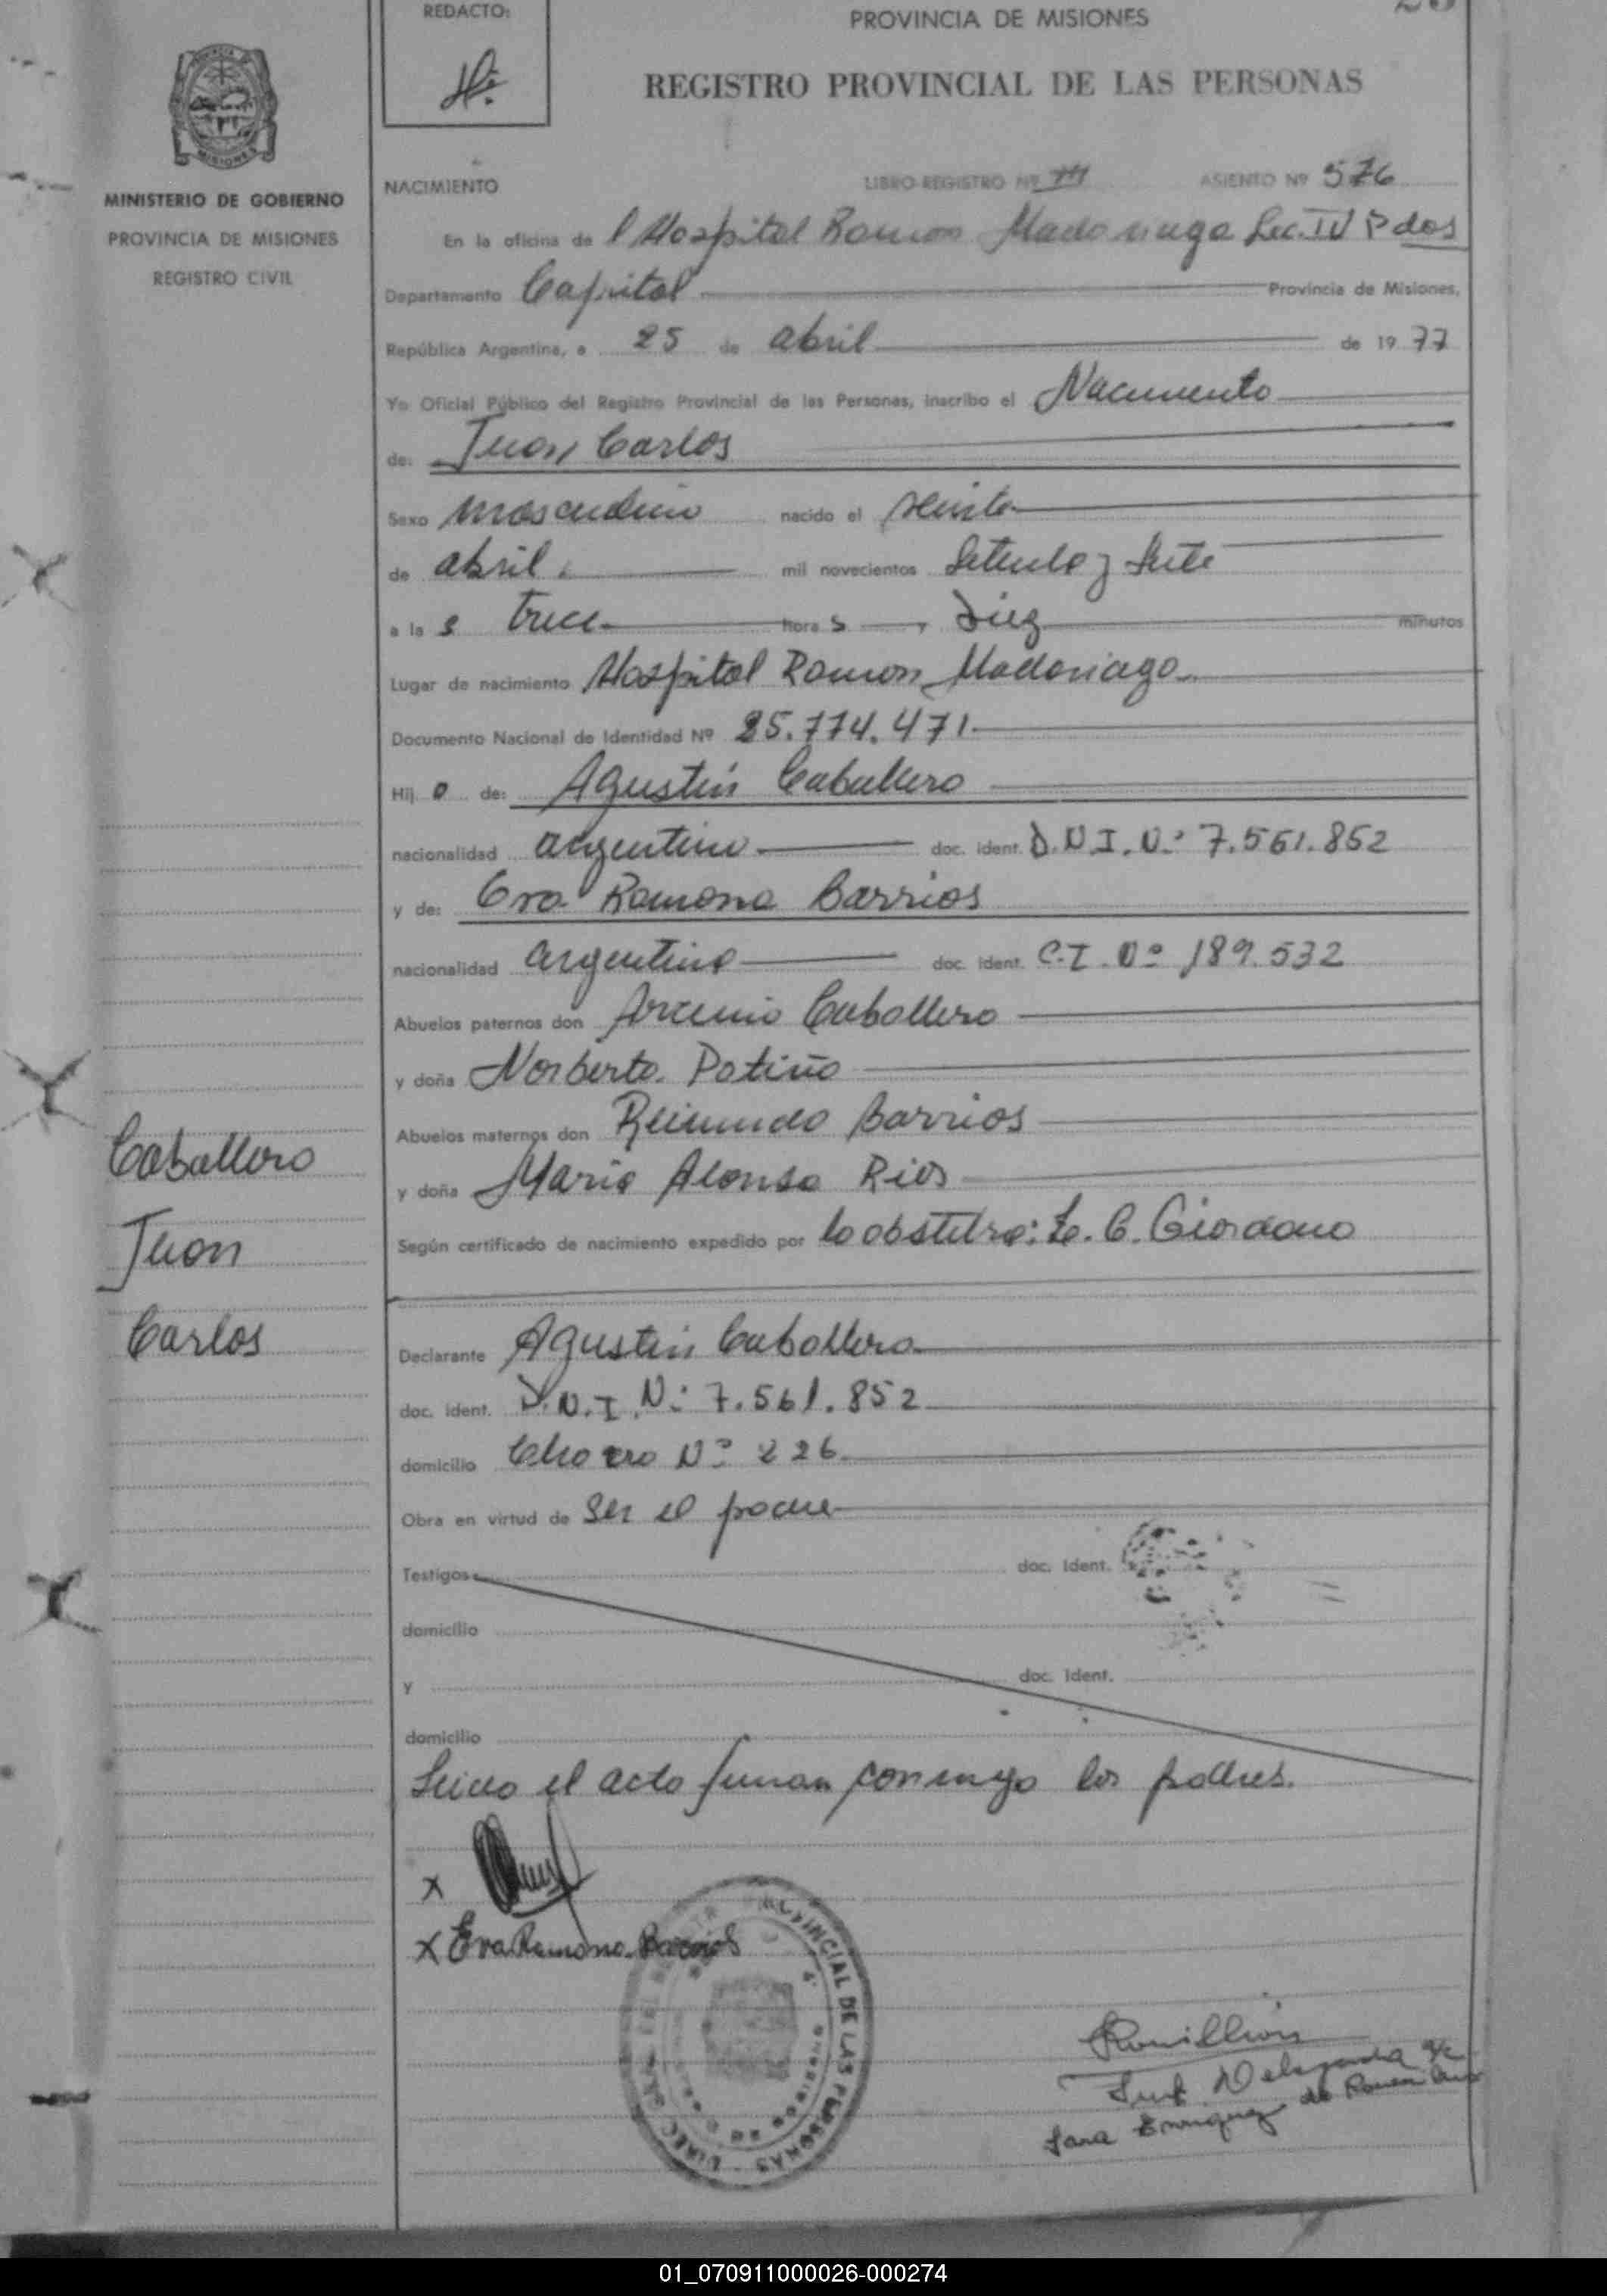 REDACTO:
PROVINCIA DE MISIONES
REGISTRO PROVINCIAL DE LAS PERSONAS
MISIONES
MINISTERIO DE GOBIERNO
PROVINCIA DE MISIONES
REGISTRO CIVIL
NACIMIENTO LIBRO-REGISTRO Nº ASIENTO Nº 576
En la oficina de l Hospital Ramon Madariaga Sec. IV P dos
Departamento Capital Provincia de Misiones,
República Argentina, a 25 de abril de 19 77
Yo Oficial Público del Registro Provincial de las Personas, inscribo el Nacimiento
de: Juan Carlos
Sexo masculino nacido el veinte
de abril mil novecientos Setenta y Siete
a la s trece hora s , diez minutos
Lugar de nacimiento Hospital Ramon Madariaga
Documento Nacional de Identidad Nº 25.774.471
Hij o de: Agustin Caballero
nacionalidad argentino doc. ident. D.N.I.N.º 7.561.852
y de: Eva Ramona Barrios
nacionalidad argentina doc. ident. C.I. Nº 189.532
Abuelos paternos don Arcenio Caballero
y doña Norberta Patiño
Abuelos maternos don Reimundo Barrios
y doña Maria Alonsa Rios
Según certificado de nacimiento expedido por la obstetra: C. Giordano
Caballero
Juan
Carlos
Declarante Agustin Caballero
doc. ident. D.N.I. Nº 7.561.852
domicilio Nº 226
Obra en virtud de ser el padre
Testigos doc. ident.
domicilio
y doc. ident.
domicilio
Leida el acta firman conmigo los padres.
x
x Eva Ramona Barrios
PROVINCIAL DE LAS PERSONAS
Rouillion
Sub Delegada a/c
Sara Enriquez de
01_070911000026-000274